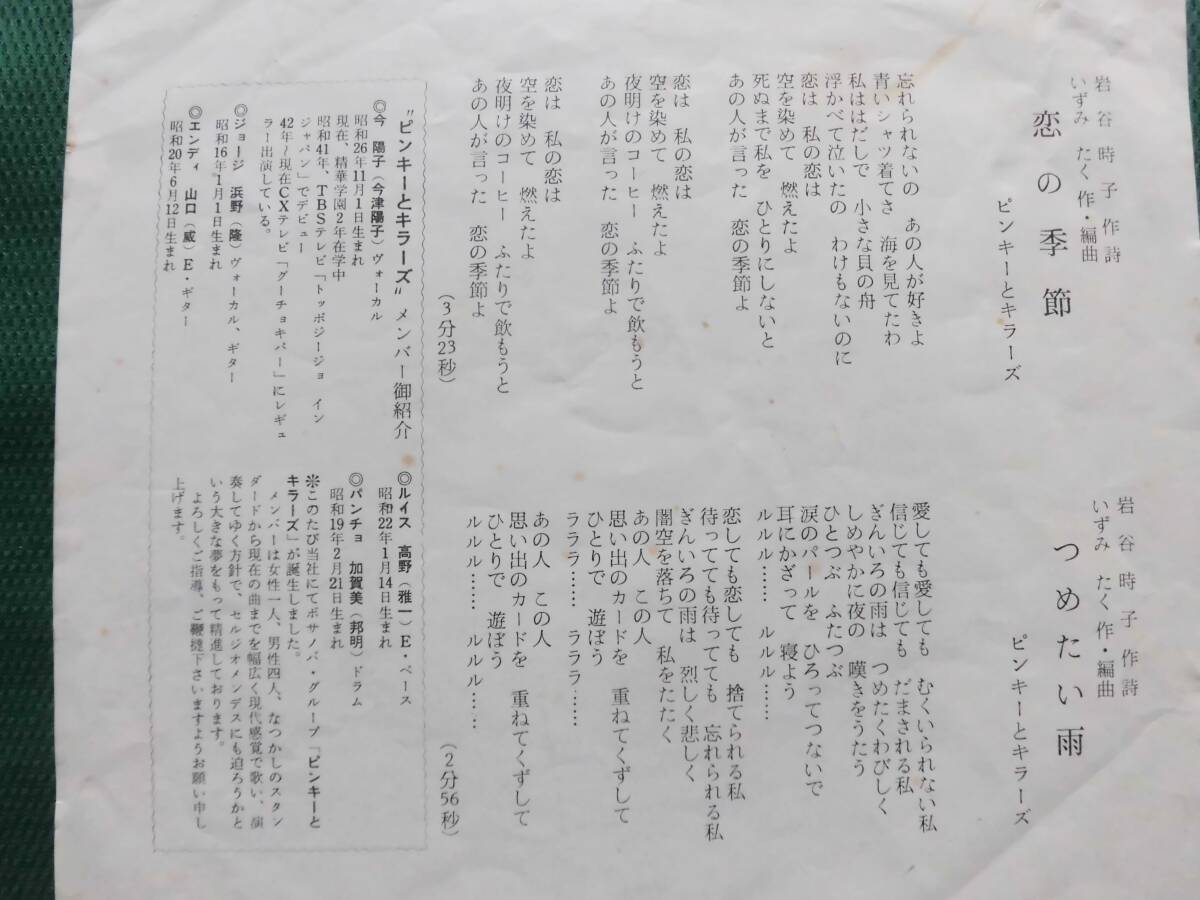 岩谷時子作詩
いずみ たく作・編曲
恋の季節
ピンキーとキラーズ
忘れられないの あの人が好きよ
青いシャツ着てさ 海を見てたわ
私ははだしで 小さな貝の舟
浮かべて泣いたの わけもないのに
恋は 私の恋は
空を染めて 燃えたよ
死ぬまで私を ひとりにしないと
あの人が言った 恋の季節よ
恋は 私の恋は
空を染めて 燃えたよ
夜明けのコーヒー ふたりで飲もうと
あの人が言った 恋の季節よ
恋は 私の恋は
空を染めて 燃えたよ
夜明けのコーヒー ふたりで飲もうと
あの人が言った 恋の季節よ
(3分23秒)
岩谷時子作詩
いずみ たく作・編曲
つめたい雨
ピンキーとキラーズ
愛しても愛しても むくいられない私
信じても信じても だまされる私
ぎんいろの雨は つめたくわびしく
しめやかに夜の 嘆きをうたう
ひとつぶ ふたつぶ
涙のパールを ひろってつないで
耳にかざって 寝よう
ルルル…… ルルル……
恋しても恋しても 捨てられる私
待ってても待ってても 忘れられる私
ぎんいろの雨は 烈しく悲しく
闇空を落ちて 私をたたく
あの人 この人
思い出のカードを 重ねてくずして
ひとりで 遊ぼう
ラララ…… ラララ……
あの人 この人
思い出のカードを 重ねてくずして
ひとりで 遊ぼう
ルルル…… ルルル……
(2分56秒)
"ピンキーとキラーズ" メンバー御紹介
◎今 陽子(今津陽子)ヴォーカル
昭和26年11月1日生まれ
現在、精華学園2年在学中
昭和41年、TBSテレビ「トッポジージョ イン
ジャパン」でデビュー
42年〜現在CXテレビ「グーチョキパー」にレギュ
ラー出演している。
◎ジョージ 浜野(隆)ヴォーカル、ギター
昭和16年1月1日生まれ
◎エンディ 山口(威)E・ギター
昭和20年6月12日生まれ
◎ルイス 高野(雅一)E・ベース
昭和22年1月14日生まれ
◎パンチョ 加賀美(邦明)ドラム
昭和19年2月21日生まれ
※このたび当社にてボサノバ・グループ「ピンキーと
キラーズ」が誕生しました。
メンバーは女性一人、男性四人、なつかしのスタン
ダードから現在の曲までを幅広く現代感覚で歌い、演
奏してゆく方針で、セルジオメンデスにも迫ろうかと
いう大きな夢をもって精進しております。
よろしくご指導、ご鞭撻下さいますようお願い申し
上げます。